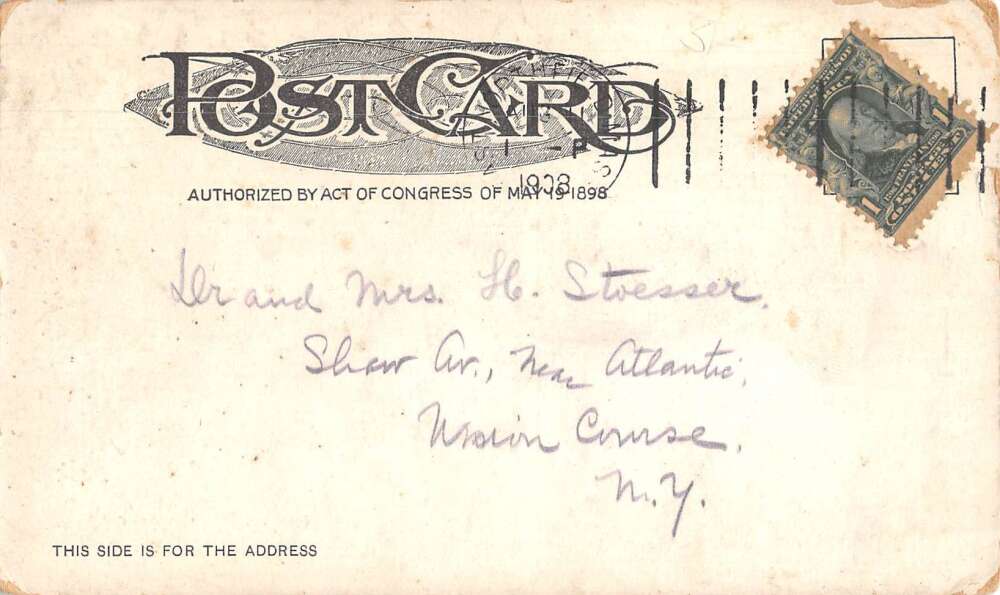 POST CARD
1 -P
1903
AUTHORIZED BY ACT OF CONGRESS OF MAY 19 1898
1 1
Dr and Mrs. H. Stoesser.
Shaw Av., Near Atlantic,
Union Course,
N.Y.
THIS SIDE IS FOR THE ADDRESS